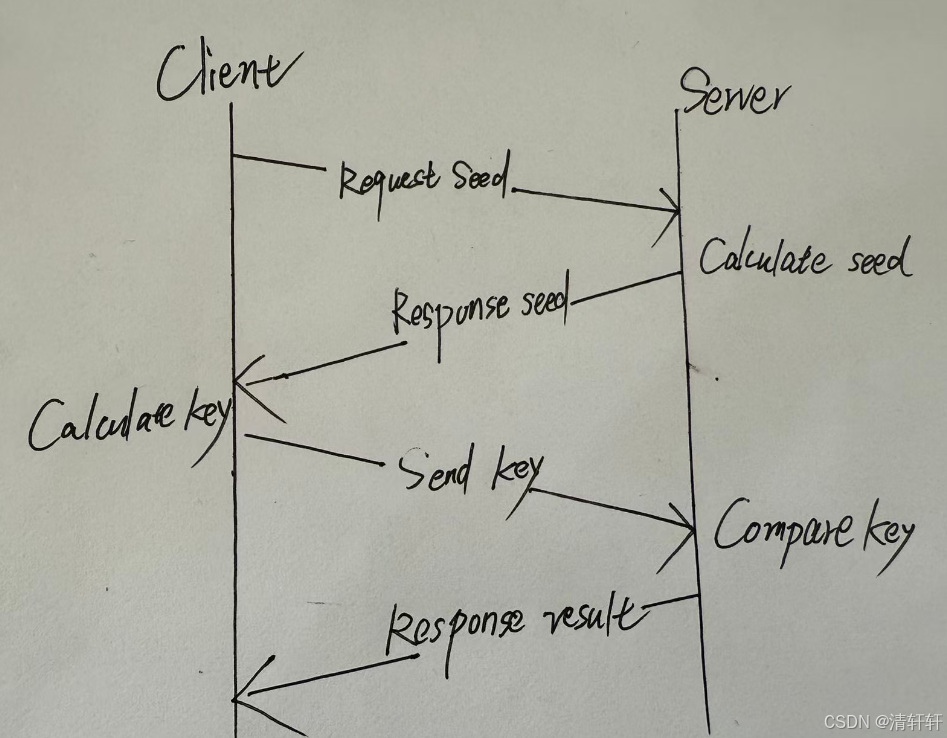 Client
Server
Request Seed
Calculate seed
Response seed
Calculate key
Send key
Compare key
Response result
CSDN @清轩轩